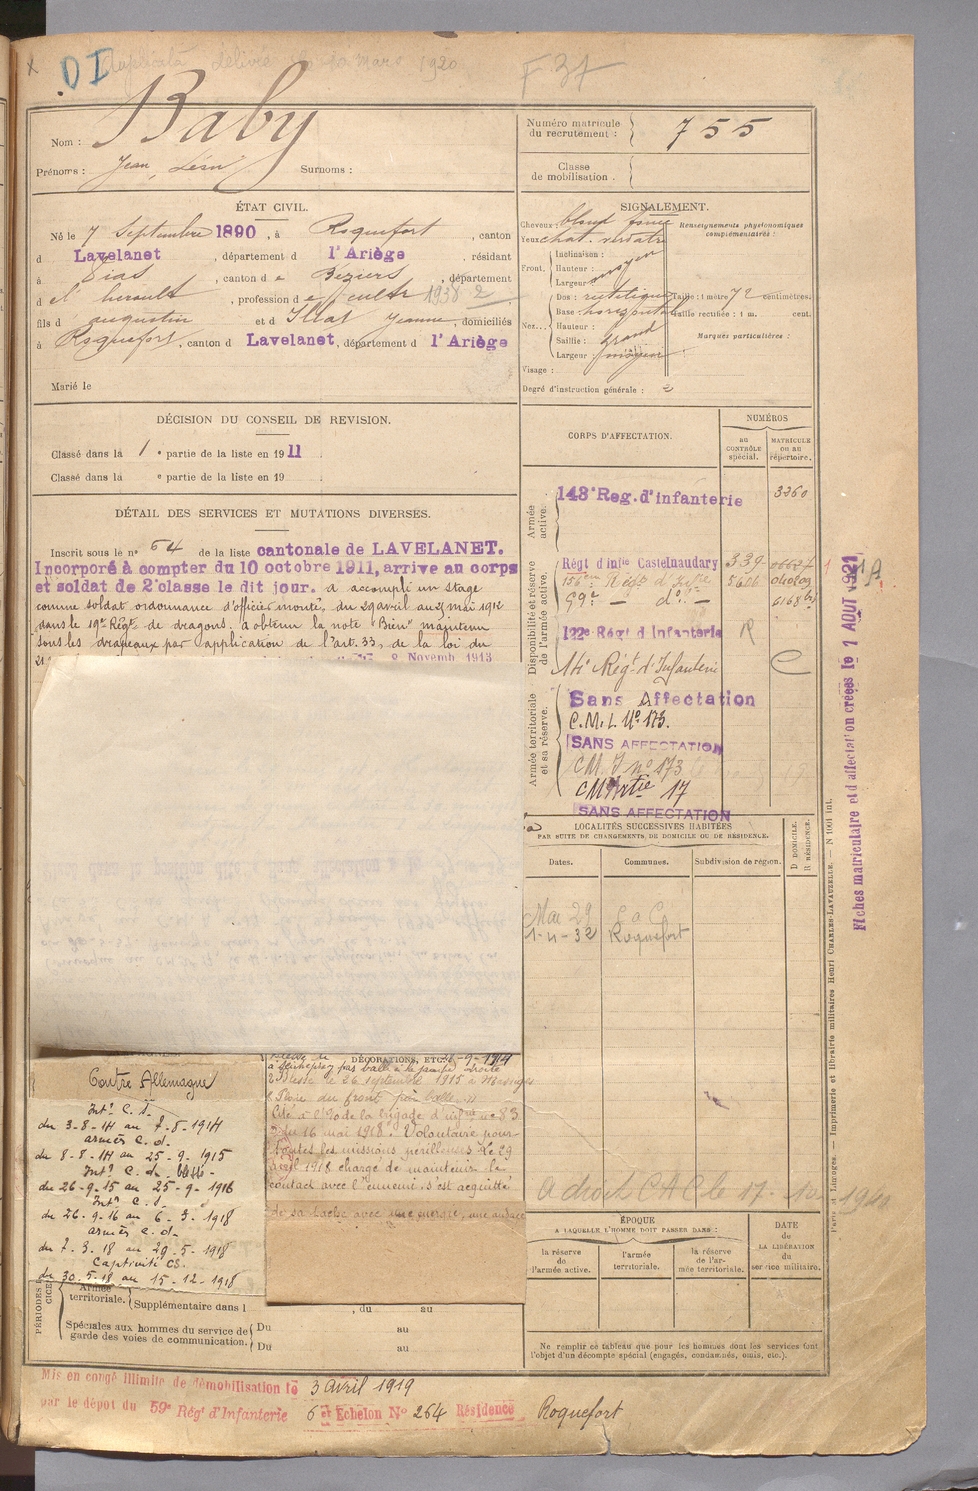 DI Duplicata délivré le 10 Mars 1920
F 37
Nom : Baby
Prénoms : Jean, Léon Surnoms :
Numéro matricule du recrutement : 755
Classe de mobilisation :
ÉTAT CIVIL.
Né le 7 Septembre 1890, à Roquefort, canton
d Lavelanet, département d l'Ariège, résidant
à , canton d e Béziers, département
d el hérault, profession d e cultr 1938 2
fils d augustin et d Illat Jeanne, domiciliés
à Roquefort, canton d Lavelanet, département d l'Ariège
Marié le
SIGNALEMENT.
Cheveux : blond foncé
Yeux chat. verdatre
Front. Inclinaison :
Hauteur : moyen
Largeur :
Nez. Dos : rectiligne
Base : horizontal
Hauteur :
Saillie : grand
Largeur : moyen
Visage :
Renseignements physionomiques complémentaires :
Taille : 1 mètre 72 centimètres.
Taille rectifiée : 1 m. cent.
Marques particulières :
Degré d'instruction générale : 2
DÉCISION DU CONSEIL DE REVISION.
Classé dans la 1 e partie de la liste en 1911
Classé dans la e partie de la liste en 19
DÉTAIL DES SERVICES ET MUTATIONS DIVERSES.
Inscrit sous le n° 64 de la liste cantonale de LAVELANET.
Incorporé à compter du 10 octobre 1911, arrive au corps
et soldat de 2e classe le dit jour. a accompli un stage
comme soldat ordonnance d'officier monté, du 29 avril au 25 mai 1912
dans le 19e Régt de dragons. a obtenu la note "Bien" maintenu
sous les drapeaux par application de l'art. 33, de la loi du
8 Novemb 1913
CORPS D'AFFECTATION.
NUMÉROS
au contrôle spécial.
MATRICULE ou au répertoire.
Armée active.
143e Reg. d'infanterie 3260
Disponibilité et réserve de l'armée active.
Régt d'infie Castelnaudary 339
156eme Régt d'Infrie 5606
59e — do —
122e Régt d'Infanterie R
14e Régt d'Infanterie
Armée territoriale et sa réserve.
Sans Affectation
C.M.I. No 173.
SANS AFFECTATION
CM I no 173
CM Artie 17
SANS AFFECTATION
LOCALITÉS SUCCESSIVES HABITÉES
PAR SUITE DE CHANGEMENTS DE DOMICILE OU DE RÉSIDENCE.
Dates. Communes. Subdivision de région. D DOMICILE. R RÉSIDENCE.
Mai 29
1-4-32 Roquefort
Fiches matriculaire et d'affectation créées le 1 AOUT 1921
Paris et Limoges. — Imprimerie et librairie militaires Henri CHARLES-LAVAUZELLE. — N 1001 int.
Contre Allemagne
Intr C.S.
du 3-8-14 au 7-8-1914
armées C.d.
du 8-8-14 au 25-9-1915
Intr C.d. blessé -
du 26-9-15 au 25-9-1916
Intr C.S.
du 26-9-16 au 6-3-1918
armées C.d.
du 7-3-18 au 29-5-1918
Captivité CS.
du 30-5-18 au 15-12-1918
DÉCORATIONS, ETC.
-9-1914
par balle à la jambe droite
2e Blessé le 26 septembre 1915 à
Plaie du front par balle
Cité à l'o de la brigade d'infrie no 83
du 16 mai 1918. Volontaire pour
toutes les missions périlleuses Le 29
avril 1918 chargé de maintenir le
contact avec l'ennemi s'est acquitté
de sa tâche avec une énergie, une audace
A droit CAC le 17-10-
ÉPOQUE
A LAQUELLE L'HOMME DOIT PASSER DANS :
la réserve de l'armée active.
l'armée territoriale.
la réserve de l'armée territoriale.
DATE de LA LIBÉRATION du service militaire.
Ne remplir ce tableau que pour les hommes dont les services font l'objet d'un décompte spécial (engagés, condamnés, omis, etc.).
PÉRIODES
Armée territoriale. Supplémentaire dans l , du au
Spéciales aux hommes du service de garde des voies de communication. Du au
Du au
Mis en congé illimité de démobilisation le 3 avril 1919
par le dépôt du 59e Régt d'Infanterie 6e Echelon No 264 Résidence Roquefort